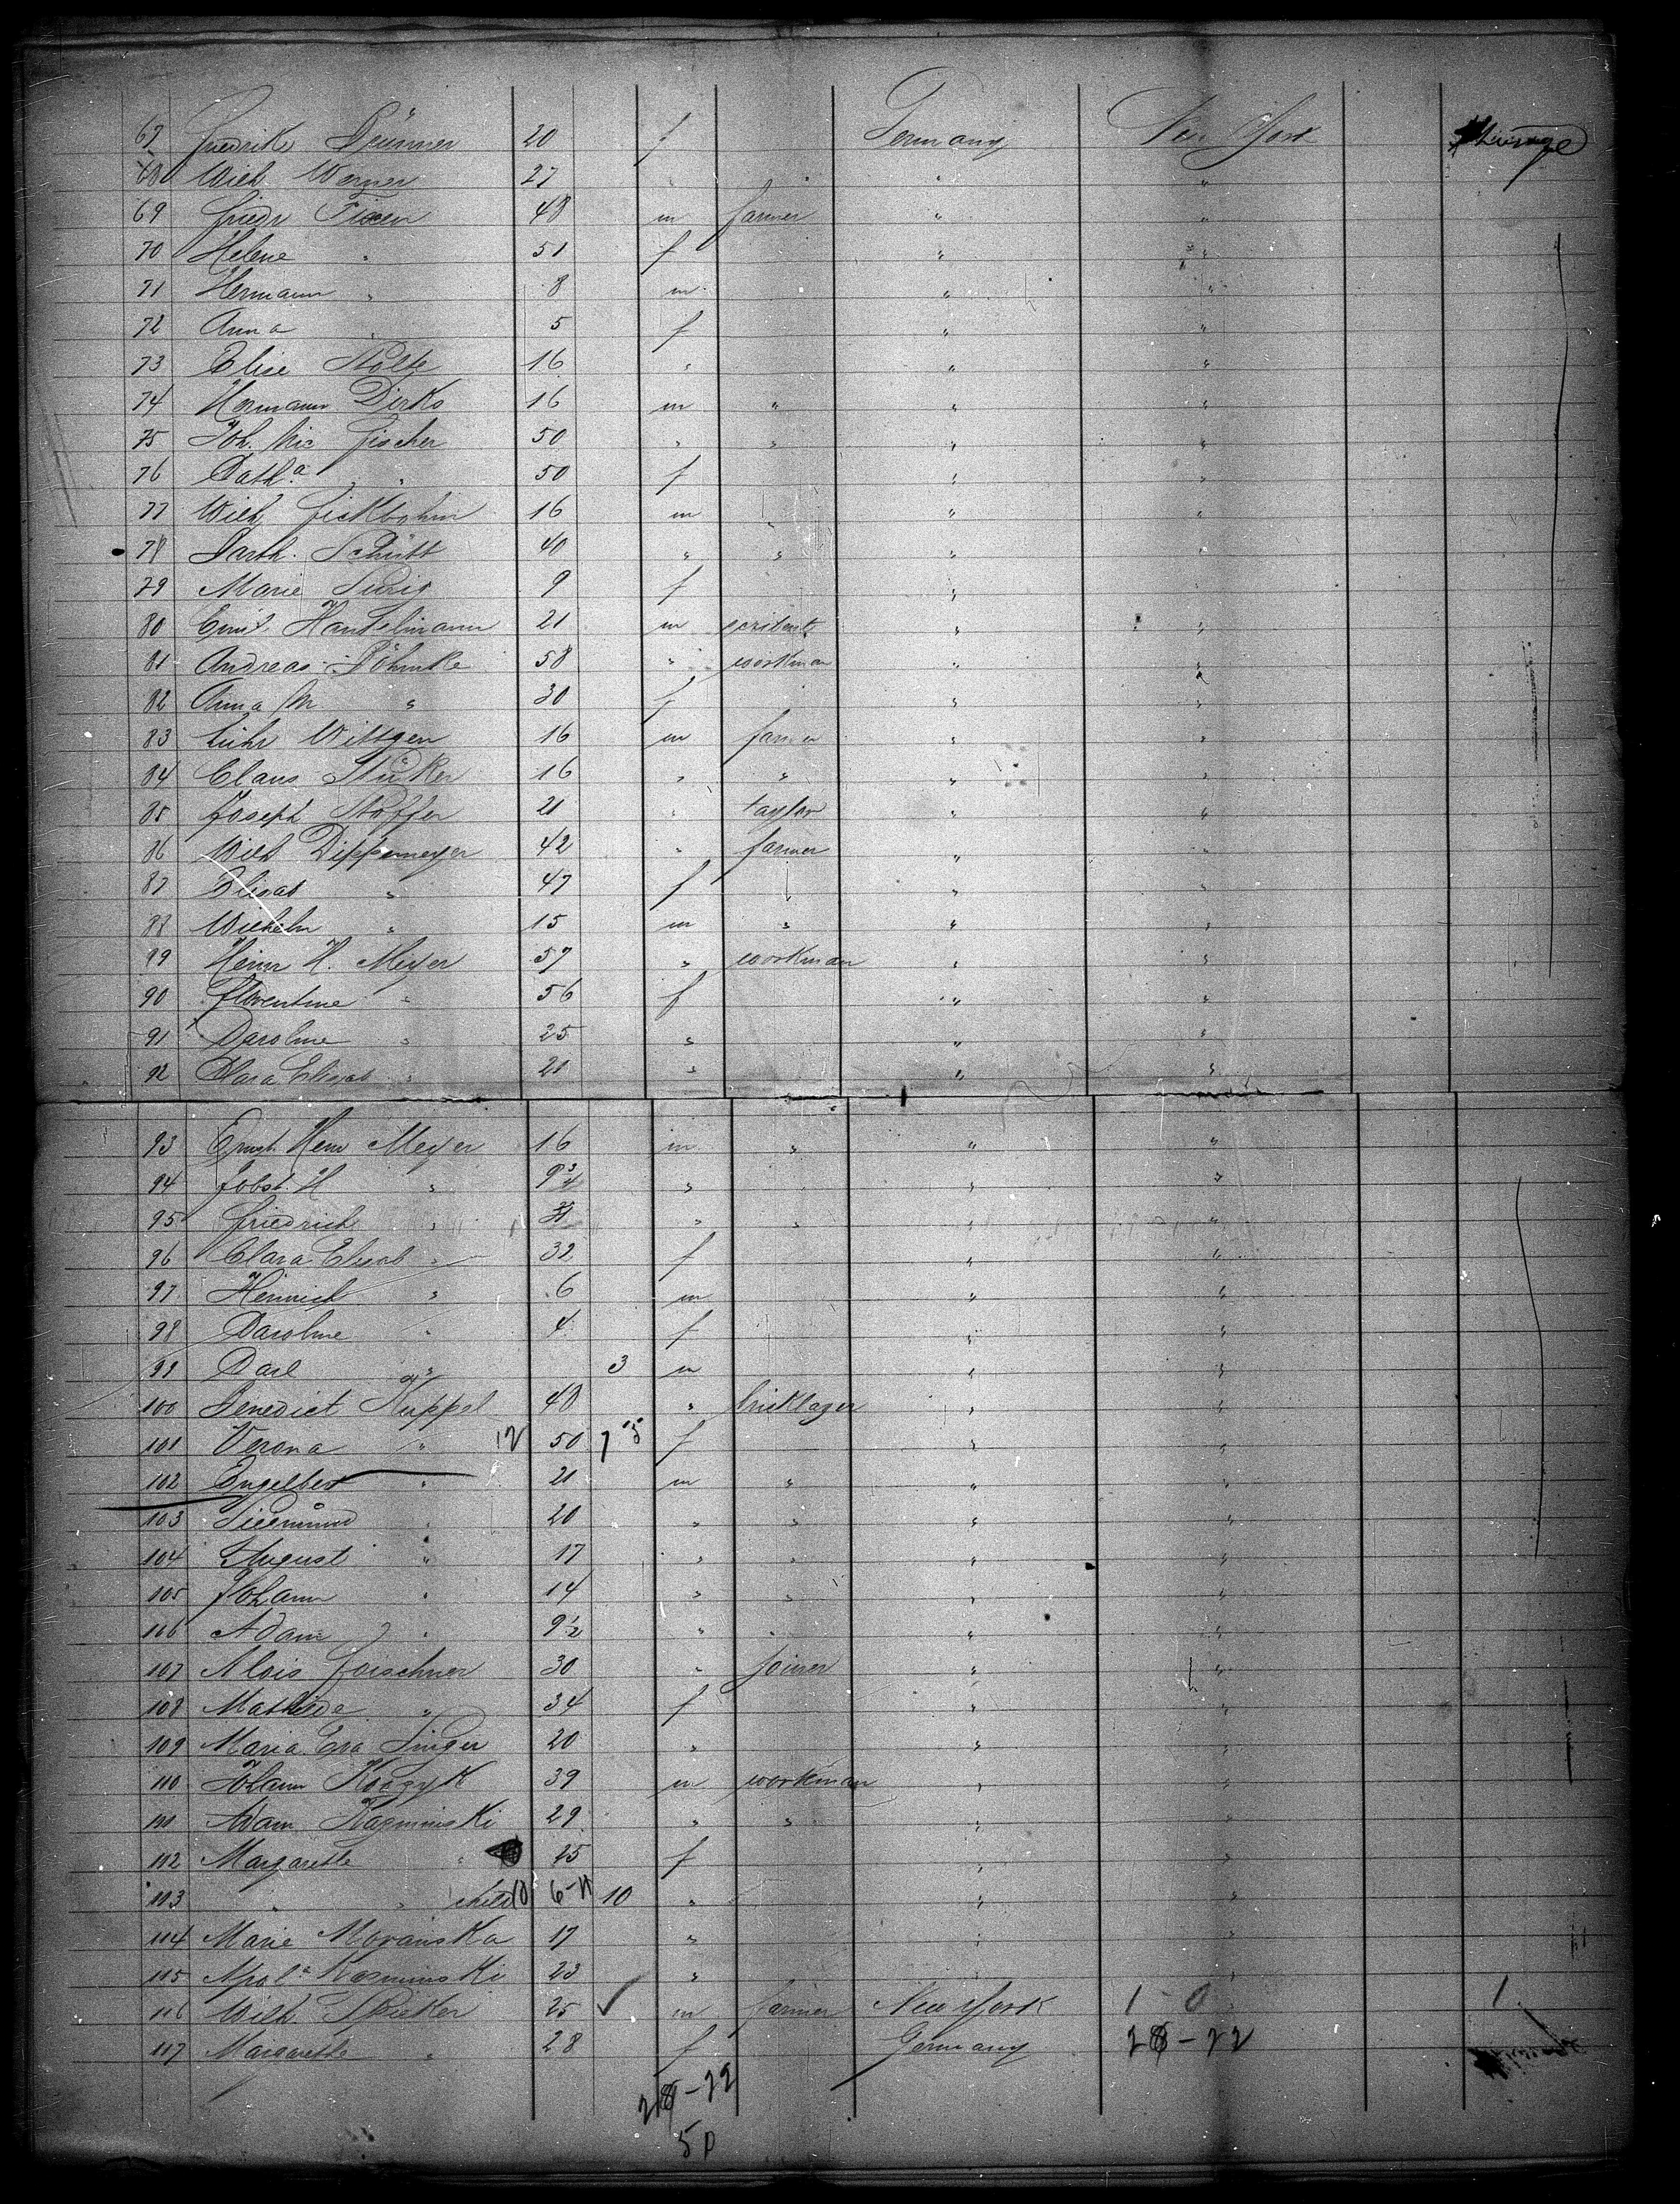 67 Friedrike Brünner 20 f Germany New York Steerage
68 Wilh Werner 27 " " "
69 Friedr Tixen 48 m farmer " "
70 Helene " 51 f " "
71 Hermann " 8 m " "
72 Anna " 5 f " "
73 Elise Stolte 16 " " "
74 Hermann Dirks 16 m " " "
75 Joh. Nic Fischer 50 " " " "
76 Cath.a " 50 f " "
77 Wilh Fickbohm 16 m " " "
78 Barth. Schütt 40 " " " "
79 Marie 9 f " "
80 Emil Hanselmann 21 m " "
81 Andreas Böhmke 58 " workman " "
82 Anna M " 30 f " "
83 Lühr Wittgen 16 m farmer " "
84 Claus Stüker 16 " " " "
85 Joseph Stoffer 21 " taylor " "
86 Wilh Dippemeyer 42 " farmer " "
87 Elisab " 47 f " "
88 Wilhelm " 15 m " " "
89 Heinr H. Meyer 57 " workman " "
90 Florentine " 56 f " "
91 Caroline " 25 " " "
92 Clara Elisab " 21 " " "
93 Ernst Heinr Meyer 16 m " " "
94 Jobst H " 9 3/4 " " "
95 Friedrich " " " " "
96 Clara Elisab " 32 f " "
97 Heinrich " 6 m " "
98 Caroline " 4 f " "
99 Carl " 3 m " "
100 Benedict Kuppel 48 " bricklayer " "
101 Verona " 12 50 f " "
102 Engelbert " 21 m " " "
103 Siegmund " 20 " " " "
104 August " 17 " " " "
105 Johann " 14 " " " "
106 Adam " 9 1/2 " " " "
107 Alois Goischner 30 " joiner " "
108 Mathilde " 34 f " "
109 Maria Eva Singer 20 " " "
110 Johann Kosgyk 39 m workman " "
111 Adam Kasminski 29 " " " "
112 Margarethe " 25 f " "
113 " " child 10 " " "
114 Marie Moranska 17 " " "
115 Apol.a Kosminski 23 " "
116 Wilh. Spieker 25 ✓ m farmer New York 1 - 0 1
117 Margarethe " 28 f Germany 28 - 22
28 - 22
50